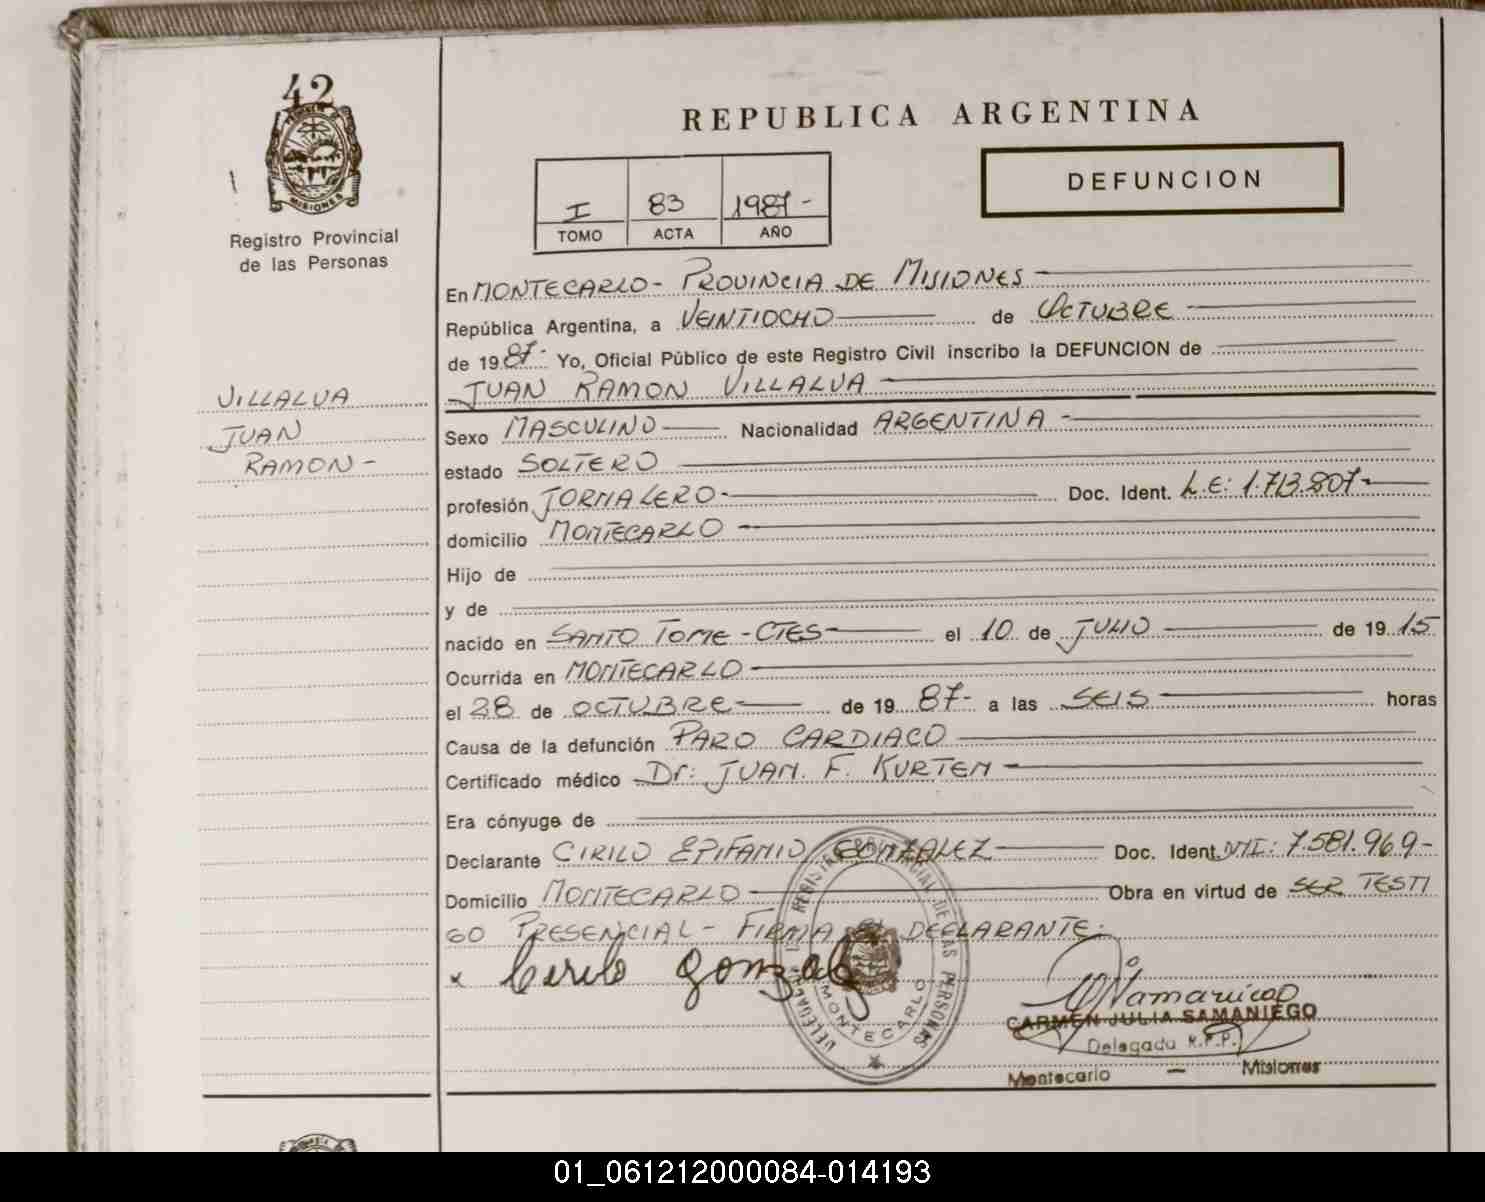 42
PROVINCIA DE
MISIONES
Registro Provincial
de las Personas
VILLALUA
JUAN
RAMON -
REPUBLICA ARGENTINA
I 83 1987-
TOMO ACTA AÑO
DEFUNCION
En MONTECARLO - PROVINCIA DE MISIONES -
República Argentina, a VEINTIOCHO de OCTUBRE
de 1987- Yo, Oficial Público de este Registro Civil inscribo la DEFUNCION de
JUAN RAMON VILLALUA
Sexo MASCULINO Nacionalidad ARGENTINA -
estado SOLTERO
profesión JORNALERO - Doc. Ident. L.E: 1.713.807-
domicilio MONTECARLO -
Hijo de
y de
nacido en SANTO TOME - CTES - el 10 de JULIO de 1915
Ocurrida en MONTECARLO
el 28 de OCTUBRE de 1987- a las SEIS horas
Causa de la defunción PARO CARDIACO
Certificado médico Dr: JUAN. F. KURTEN
Era cónyuge de
Declarante CIRILO EPIFANIO GONZALEZ Doc. Ident. MI: 7.581.969-
Domicilio MONTECARLO Obra en virtud de SER TESTI
GO PRESENCIAL - FIRMA EL DECLARANTE.
x Cirilo Gonzalez
REGISTRO PROVINCIAL DE LAS PERSONAS
DELEGACION
MONTECARLO
CARMEN JULIA SAMANIEGO
Delegada R.P.P.
Montecarlo - Misiones
01_061212000084-014193